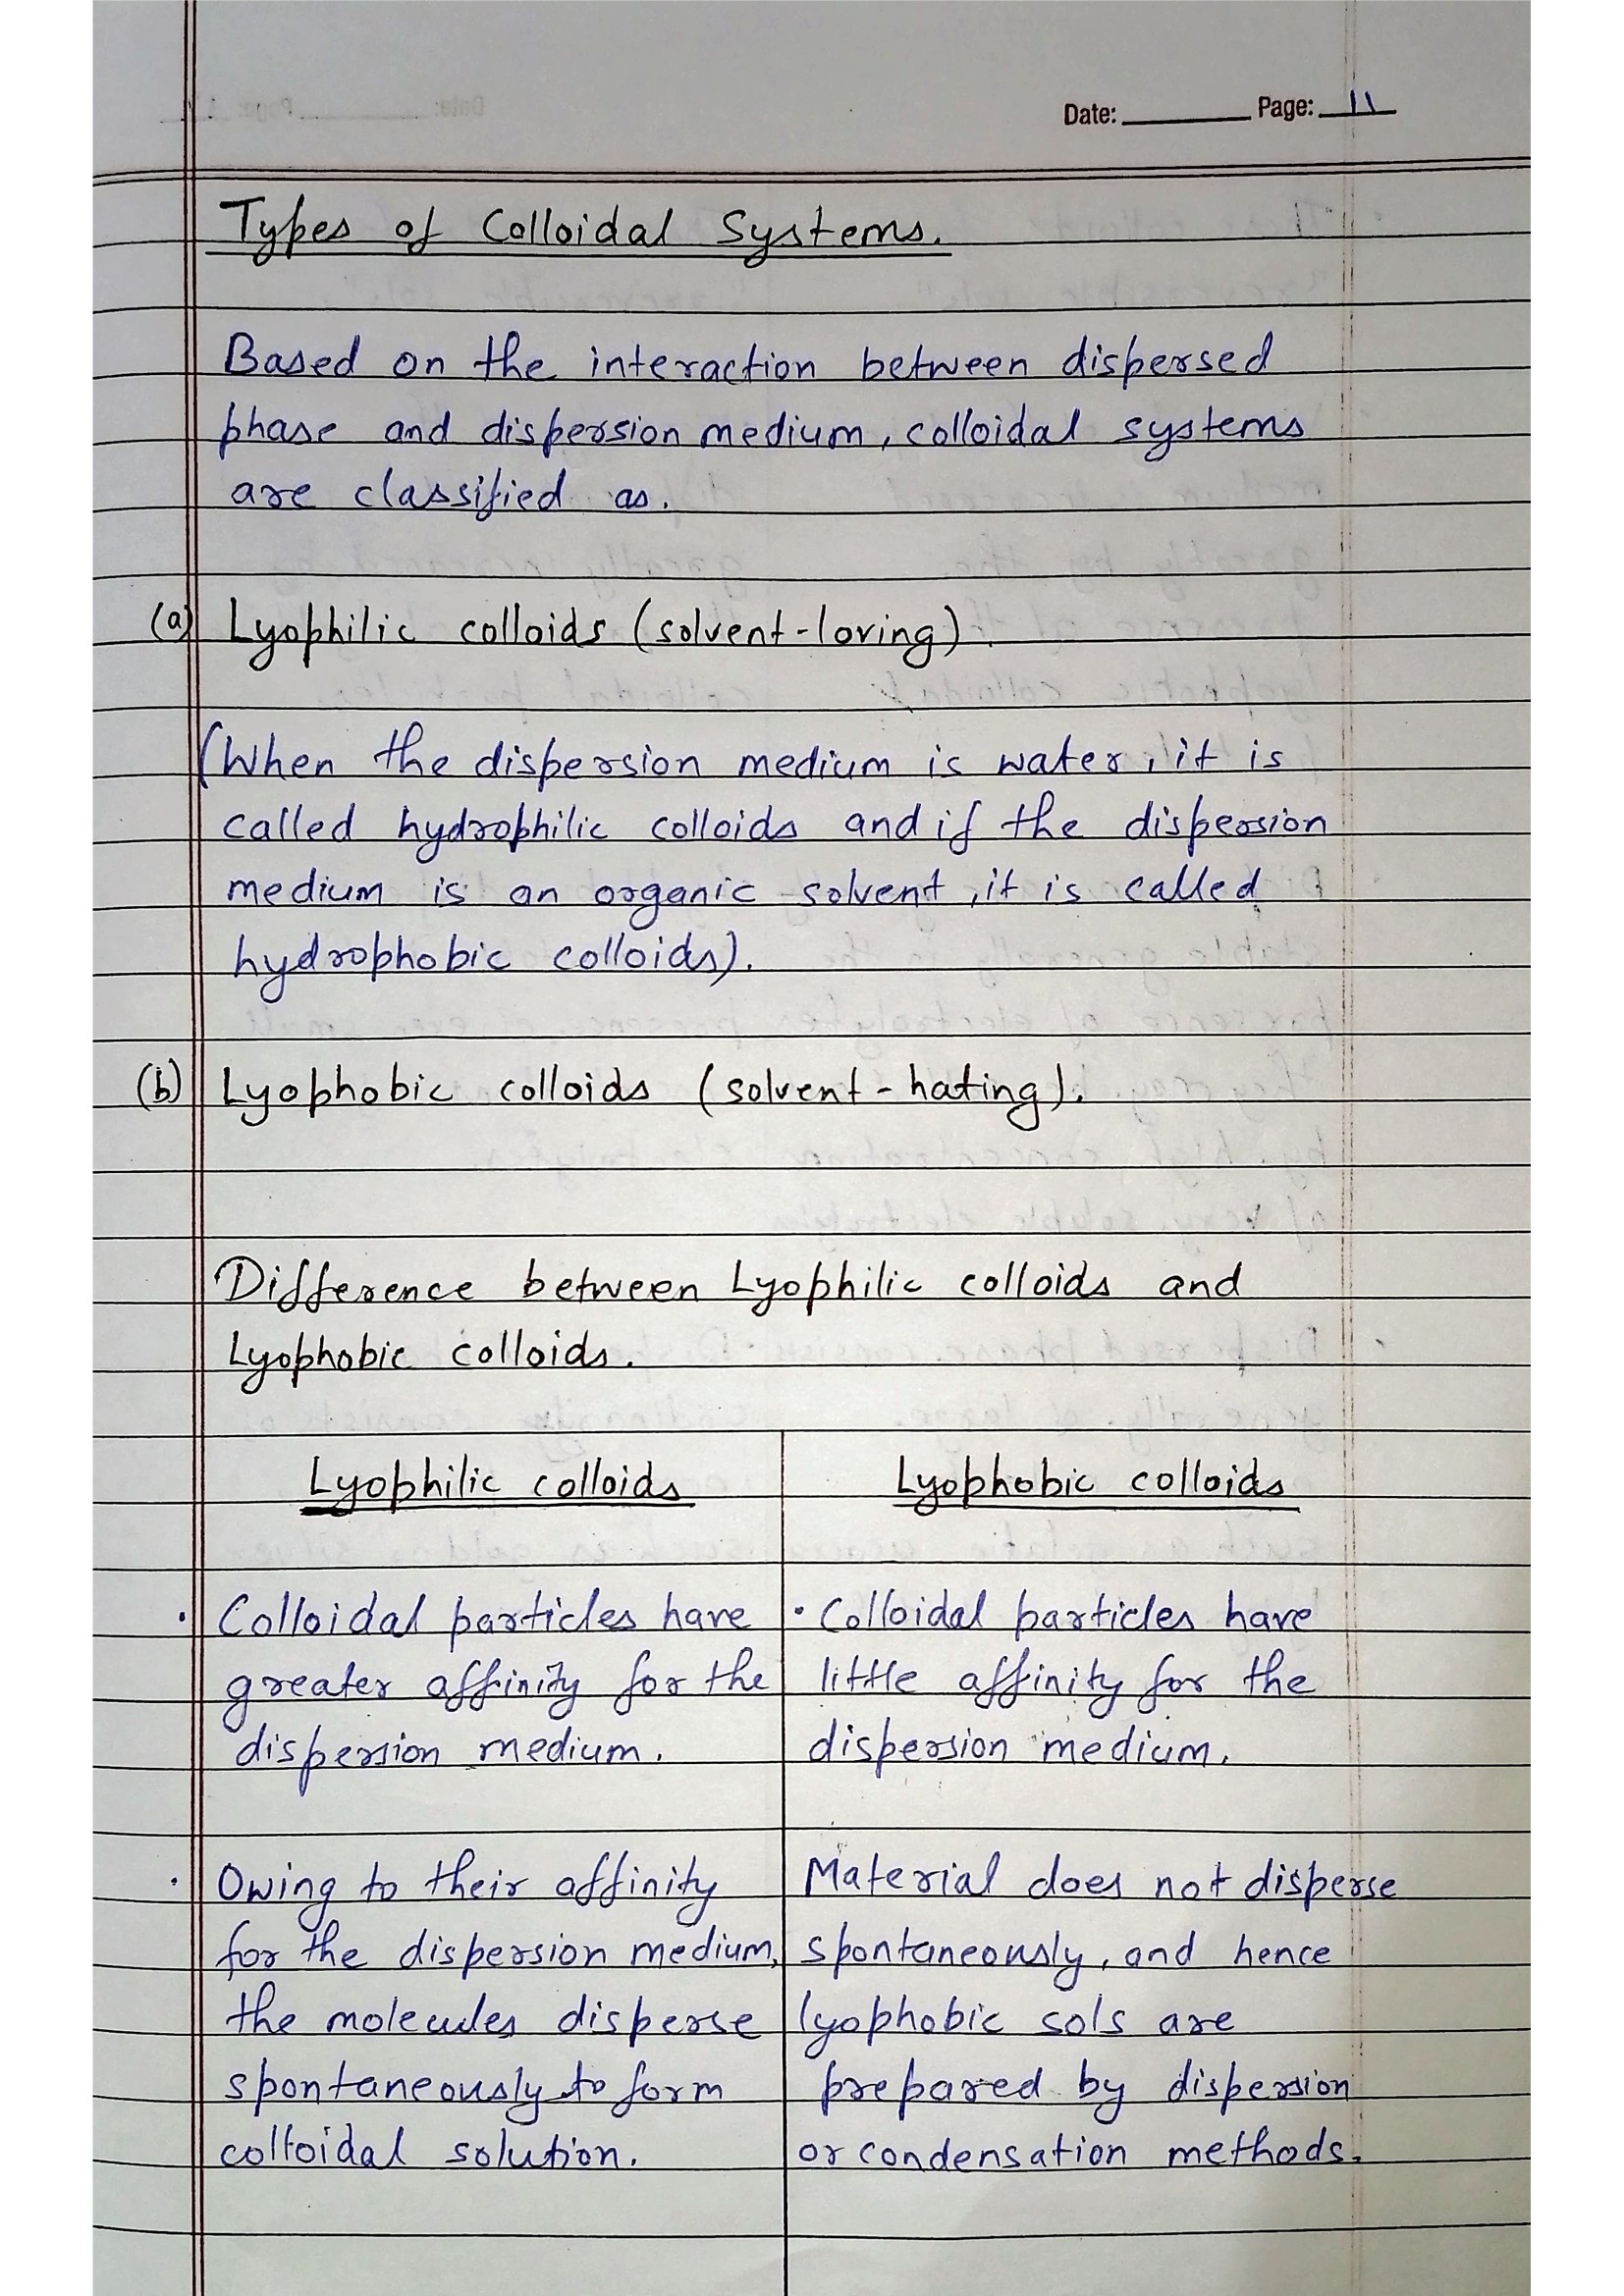 Date: Page: 11
Types of Colloidal Systems.
Based on the interaction between dispersed
phase and dispersion medium, colloidal systems
are classified as.
(a) Lyophilic colloids (solvent-loving).
(When the dispersion medium is water, it is
called hydrophilic colloids and if the dispersion
medium is an organic solvent, it is called
hydrophobic colloids).
(b) Lyophobic colloids (solvent-hating).
Difference between Lyophilic colloids and
Lyophobic colloids.
Lyophilic colloids
· Colloidal particles have
greater affinity for the
dispersion medium.
· Owing to their affinity
for the dispersion medium,
the molecules disperse
spontaneously to form
colloidal solution.
Lyophobic colloids
· Colloidal particles have
little affinity for the
dispersion medium.
Material does not disperse
spontaneously, and hence
lyophobic sols are
prepared by dispersion
or condensation methods.